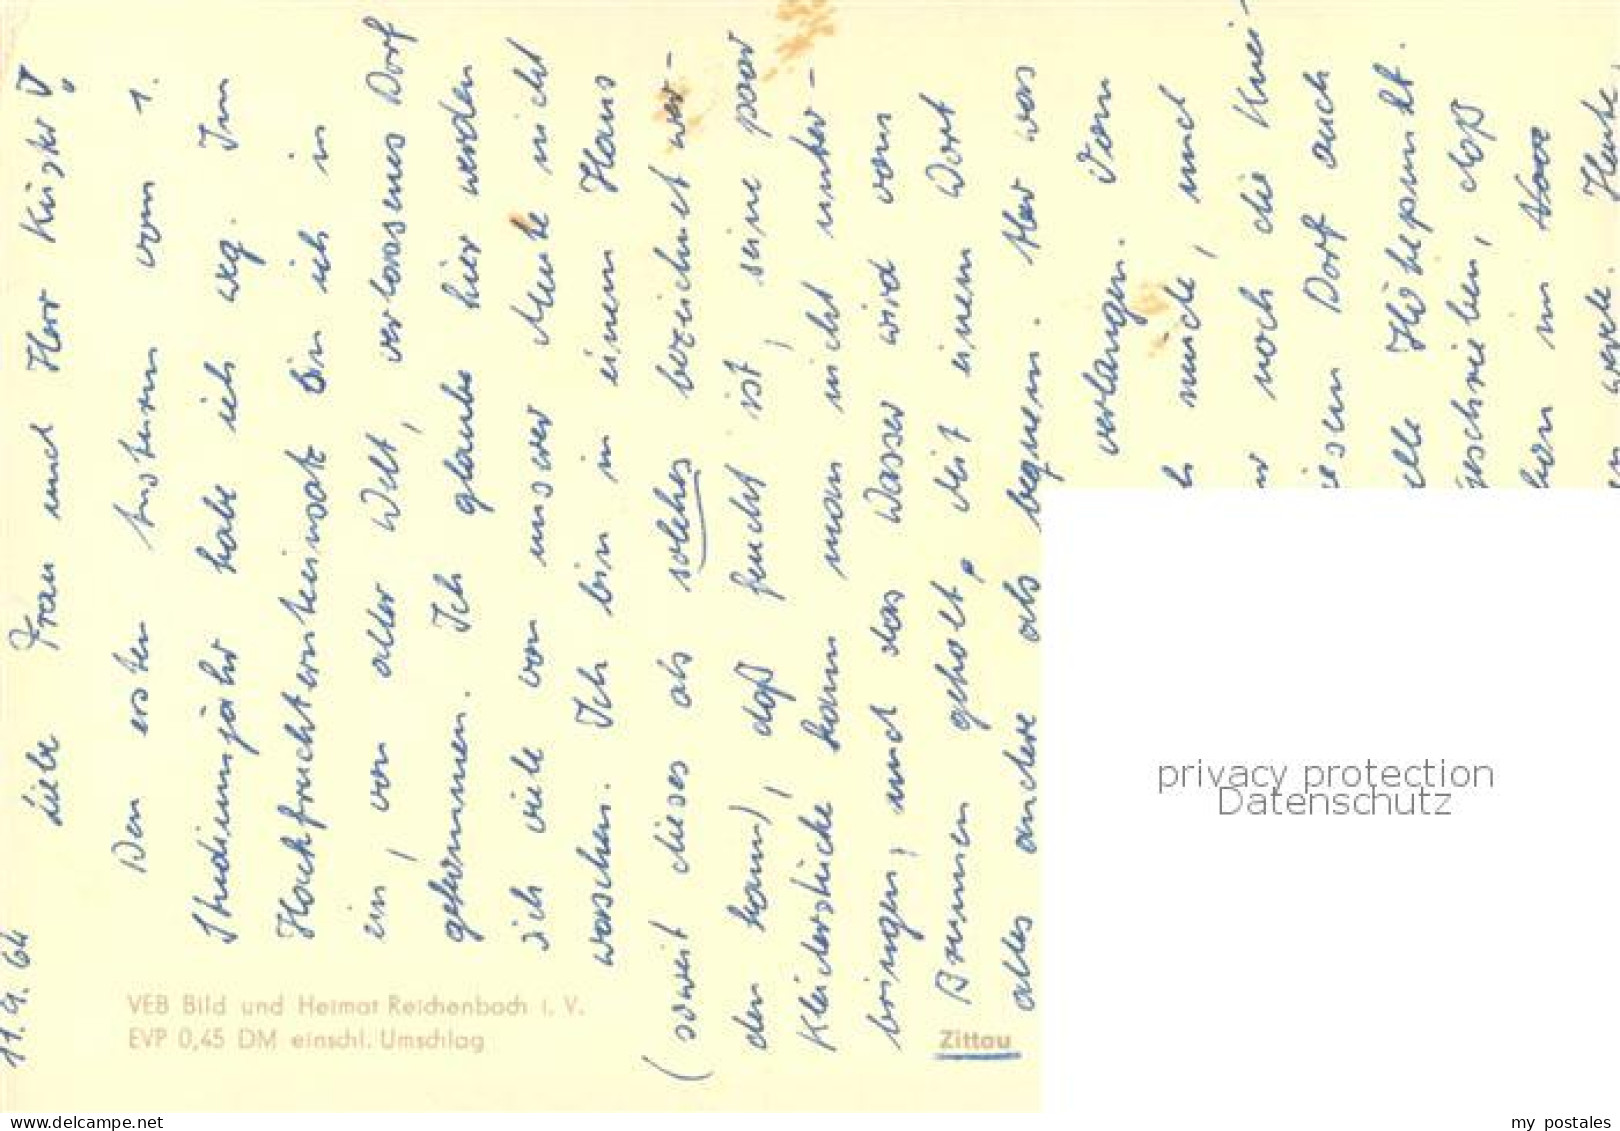 11.9.64
Liebe Frau und Herr Küster!
Den ersten Untern vom 1.
Studienjahr habe ich weg. Im
Hackfruchternteeinsatz bin ich in
ein, von aller Welt, verlassenes Dorf
gekommen. Ich glaube hier werden
sich viele von unserer Meute nicht
waschen. Ich bin in einem Haus
(soweit dieses als solches bezeichnet wer-
den kann), daß feucht ist, seine paar
Kleiderstücke kann man nicht unter-
bringen, und das Wasser wird vom
Brunnen geholt, mit einem Wort
alles andere als bequem. Wer was
verlangen. Vom
müde, und
noch die Knei-
Dorf auch
Höhepunkt.
geschrieben, daß
im
Heute,
VEB Bild und Heimat Reichenbach i. V.
EVP 0,45 DM einschl. Umschlag
Zittau
privacy protection
Datenschutz
www.delcampe.net
my_postales